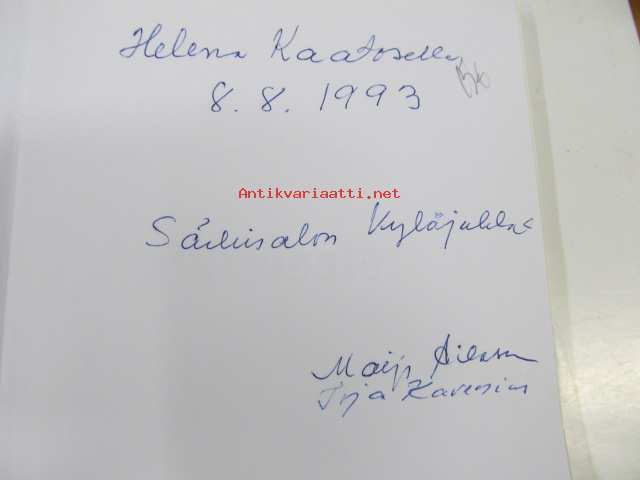 Helena Kaatosella
8.8. 1993
Antikvariaatti.net
Särkisalon Kyläjuhla
Maija
Irja Karenius